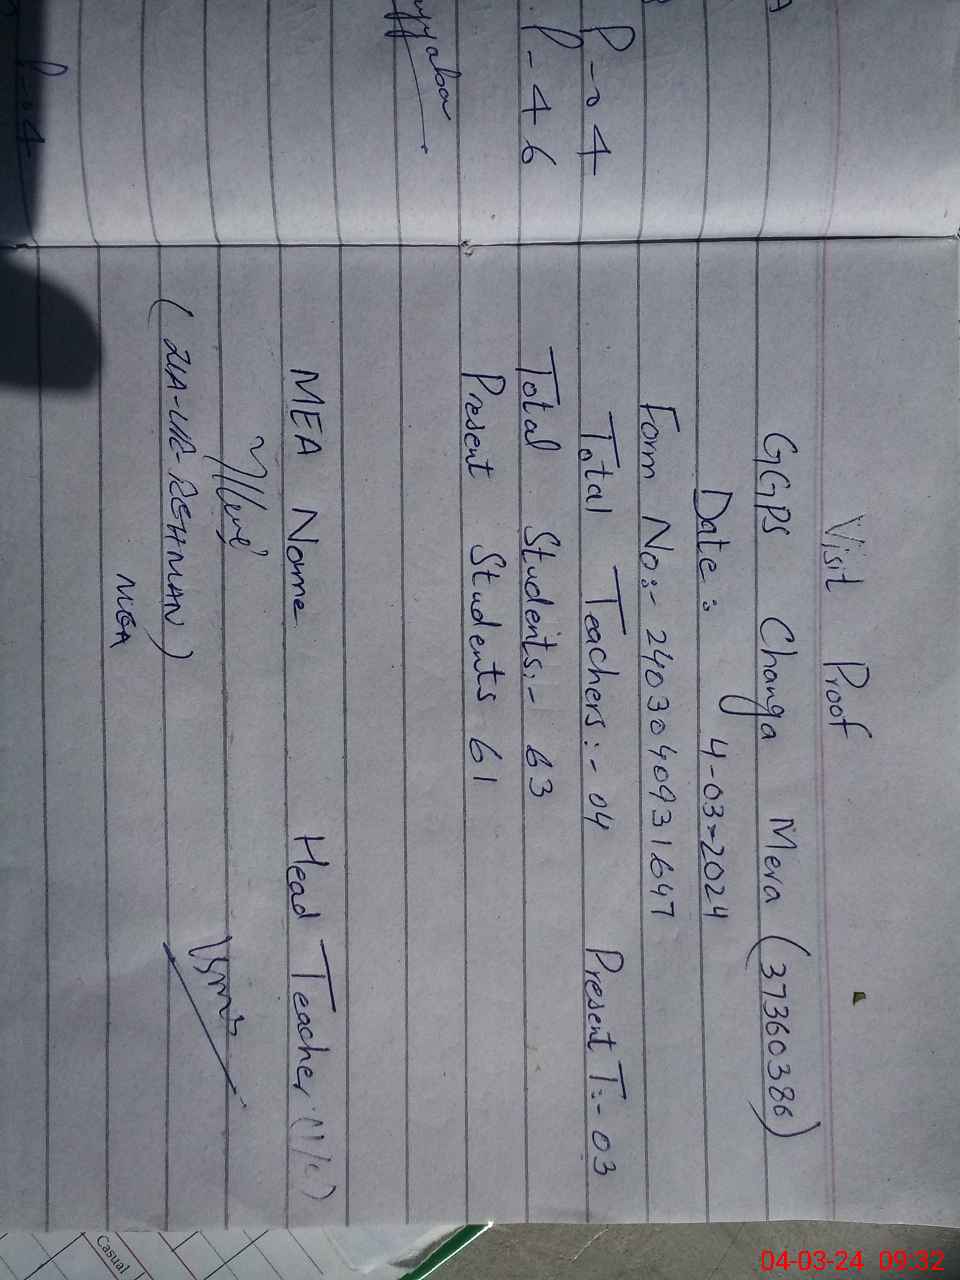 Visit Proof
GGPS Changa Mera (37360386)
Date: 4-03-2024
Form No:- 2403040931647
Total Teachers:- 04 Present T:- 03
Total Students:- 63
Present Students 61
MEA Name Head Teacher (I/c)
(ZIA-UR-REHMAN)
MEA
P-04
P-46
P-04
Casual
04-03-24 09:32